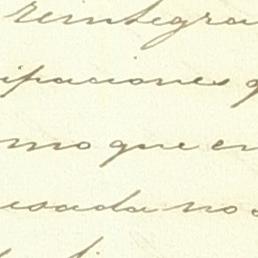 reintegra
ipaciones
mo que en
esada no